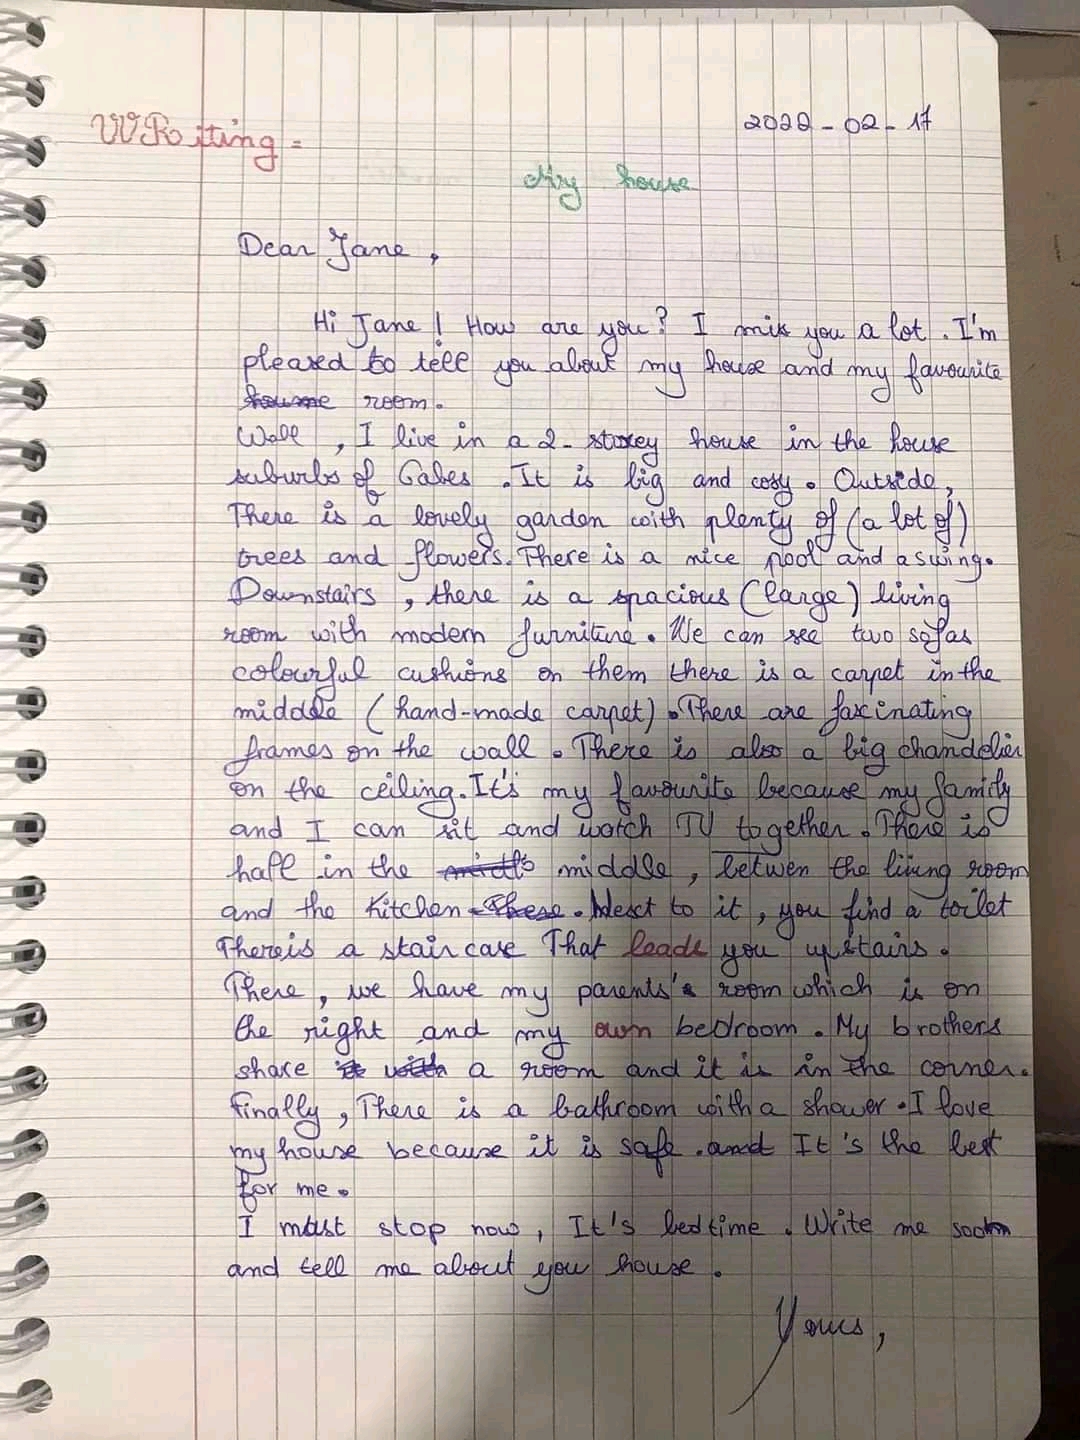 WRiting =
2022-02-17
My house
Dear Jane,
Hi Jane! How are you? I miss you a lot. I'm
pleased to tell you about my house and my favourite
room.
Well, I live in a 2-storey house in the house
suburbs of Gabes. It is big and cosy. Outside,
There is a lovely garden with plenty of (a lot of)
trees and flowers. There is a nice pool and a swing.
Downstairs, there is a spacious (large) living
room with modern furniture. We can see two sofas
colourful cushions on them there is a carpet in the
middle (hand-made carpet). There are fascinating
frames on the wall. There is also a big chandelier
on the ceiling. It's my favourite because my family
and I can sit and watch TV together. There is
hall in the middle, betwen the living room
and the kitchen. Next to it, you find a toilet
There is a stair case That leads you upstairs.
There, we have my parents's room which is on
the right and my own bedroom. My brothers
share a room and it is in the corner.
Finally, There is a bathroom with a shower. I love
my house because it is safe. and It's the best
for me.
I must stop now, It's bedtime. Write me soon
and tell me about you house.
Yours,